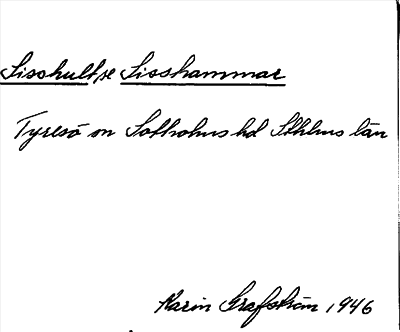 Sisshult, se Sisshammar
Tyresö sn Sotholms hd Sthlms län
Karin Grafström 1946